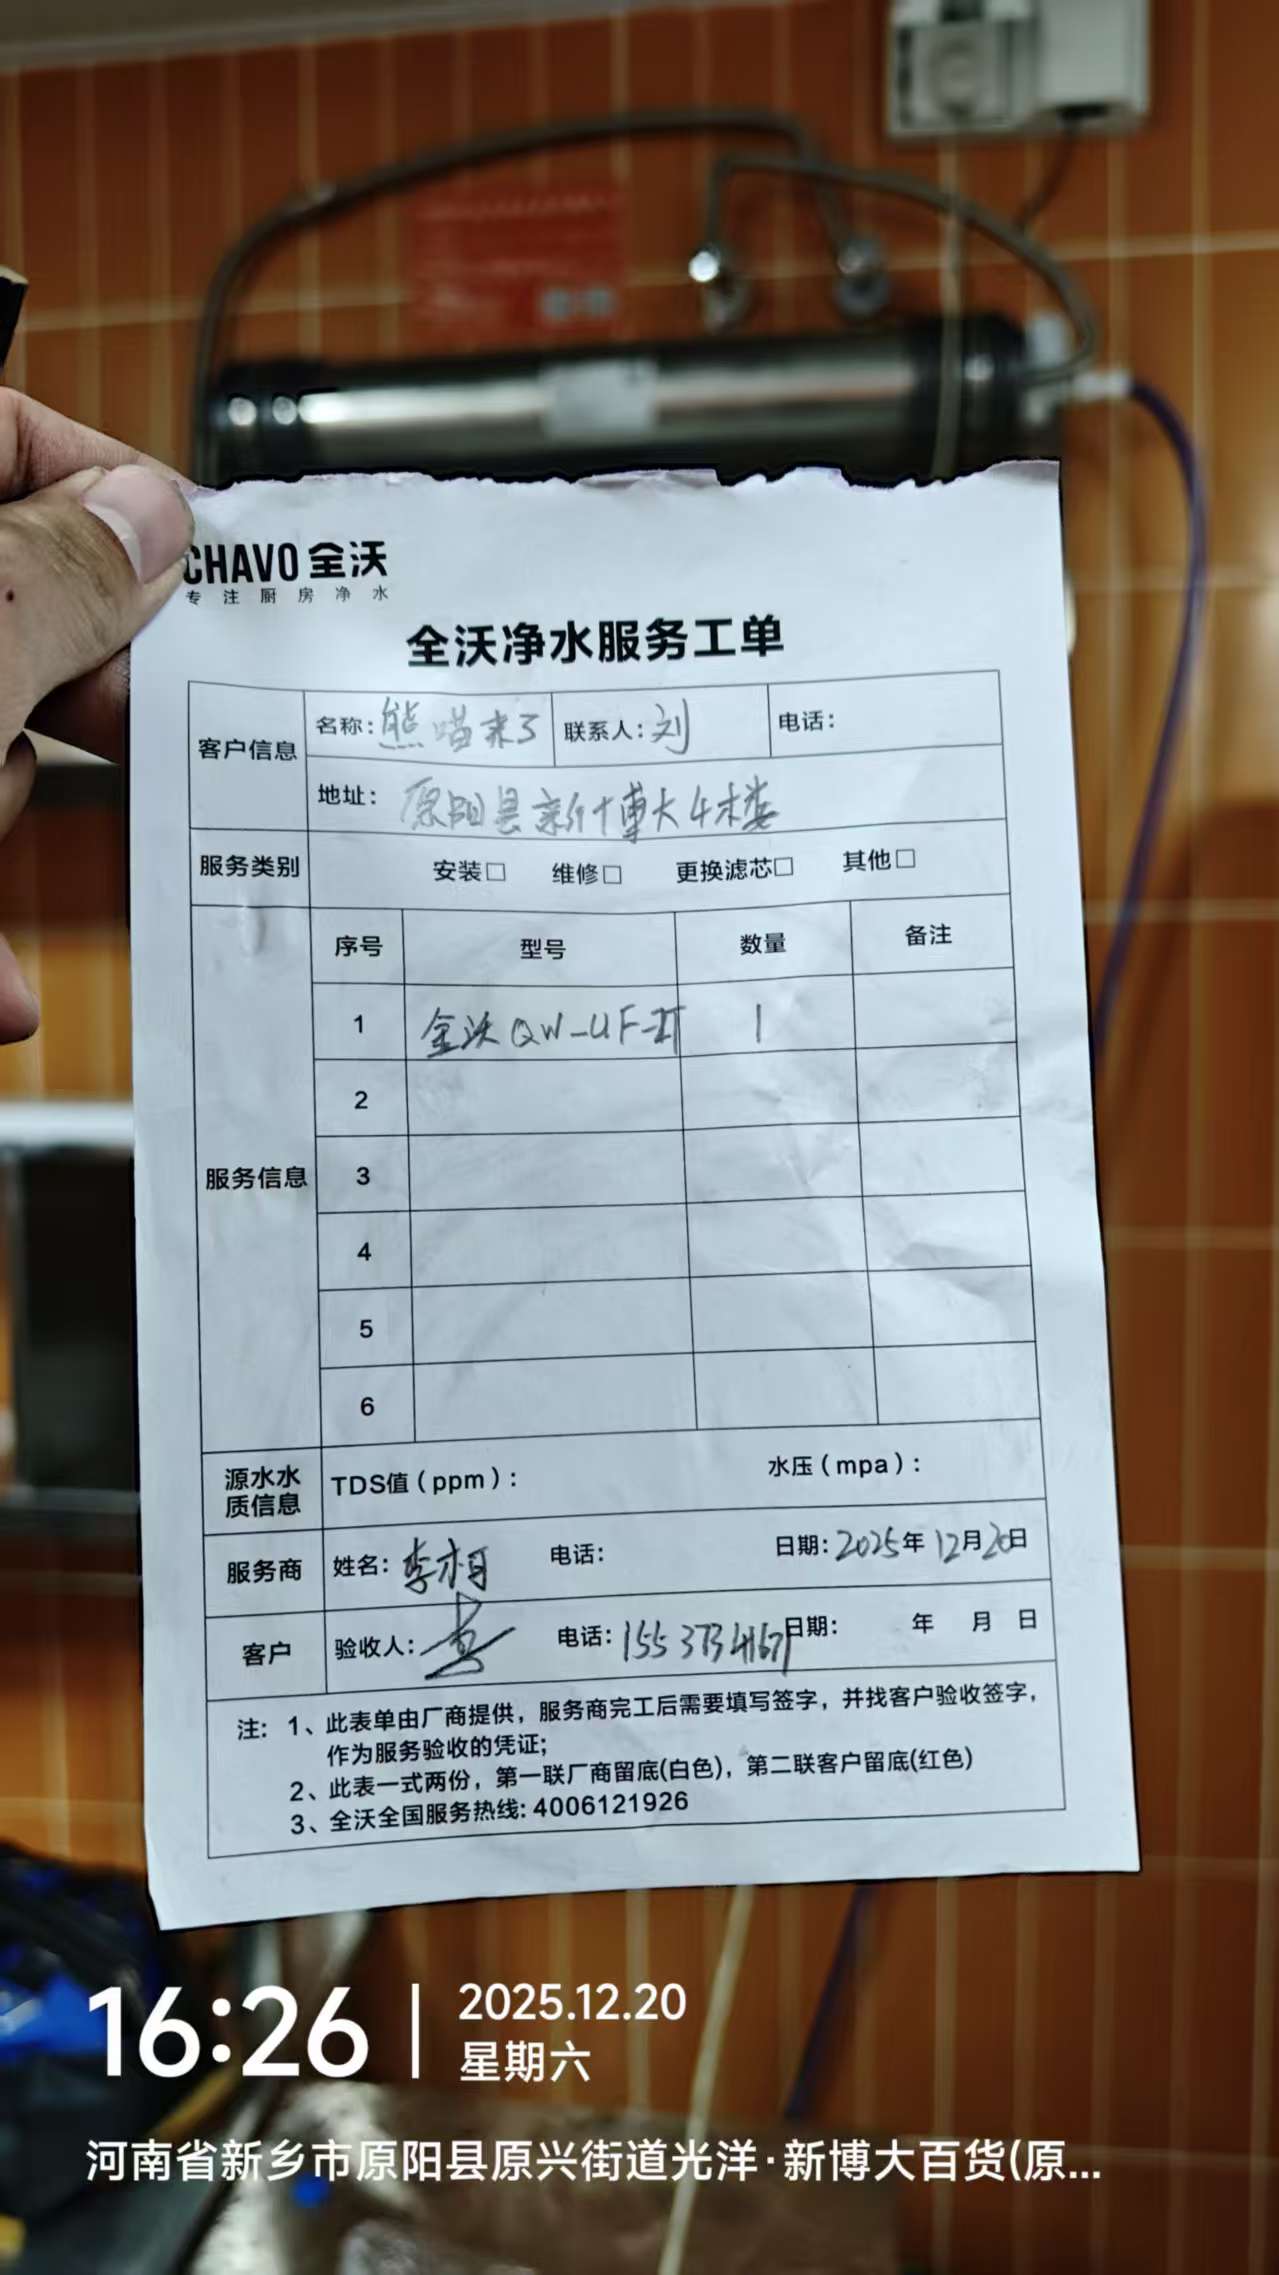 CHAVO 全沃
专注厨房净水
全沃净水服务工单
客户信息 名称：熊喵来了 联系人：刘 电话：
地址：原阳县新博大4楼
服务类别 安装□ 维修□ 更换滤芯□ 其他□
服务信息 序号 型号 数量 备注
1 全沃QW-UF- 1
2
3
4
5
6
源水水质信息 TDS值（ppm）： 水压（mpa）：
服务商 姓名：李 电话： 日期：2025年12月20日
客户 验收人： 电话：155 3734 日期： 年 月 日
注：1、此表单由厂商提供，服务商完工后需要填写签字，并找客户验收签字，
作为服务验收的凭证；
2、此表一式两份，第一联厂商留底(白色)，第二联客户留底(红色)
3、全沃全国服务热线：4006121926
16:26
2025.12.20
星期六
河南省新乡市原阳县原兴街道光洋·新博大百货(原...